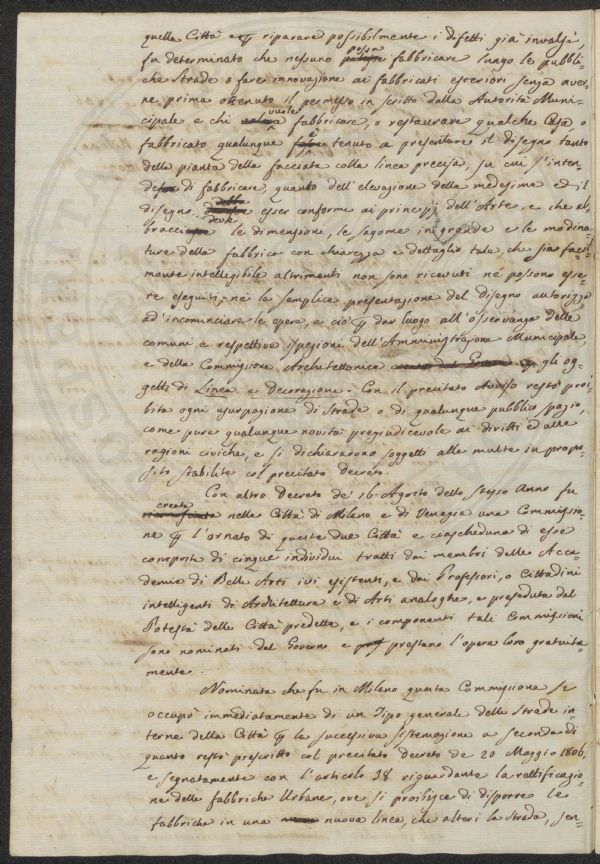 quella Città e per riparare possibilmente i difetti già invalsi,
fu determinato che nessuno possa fabbricare lungo le pubbli=
che strade o fare innovazione ai fabbricati esteriori senza aver=
ne prima ottenuto il permesso in scritto dalla Autorità Muni=
cipale e chi vuole fabbricare, o restaurare qualche Casa o
fabbricato qualunque è tenuto a presentare il disegno tanto
della pianta della facciata colla linea precisa, su cui s'inten=
de di fabbricare, quanto dell'elevazione della medesima ed il
disegno debbe esser conforme ai principj dell'Arte, e che ab=
bracci le dimensioni, le sagome in grande e le modina=
ture della fabbrica con chiarezza e dettaglio tale, che sia facil=
mente intellegibile altrimenti non sono ricevuti nè possono esse=
re eseguiti, nè la semplice presentazione del disegno autorizza
ad'incominciare le opere, e ciò per dar luogo all'osservanza delle
comuni e respettive ispezioni dell'Amministrazione Municipale,
e della Commissione Architettonica per gli og=
getti di Linea e Decorazione. Con il precitato Avviso restò proi=
bita ogni usurpazione di strade o di qualunque pubblico spazio,
come pure qualunque novità pregiudicevole ai diritti ed alle
ragioni civiche, e si dichiararono soggetti alle multe in propo=
sito stabilite col precitato Decreto.
Con altro Decreto de' 16. Agosto dello stesso Anno fu
creata nelle Città di Milano e di Venezia una Commissio=
ne per l'ornato di queste due Città e ciascheduna di esse
composta di cinque individui tratti dai membri delle Acca=
demie di Belle Arti ivi esistenti, e dai Professori, o Cittadini
intelligenti di Architettura e di Arti analoghe, e preseduta dal
Potestà delle Città predette, e i componenti tali Commissioni
sono nominati dal Governo e prestano l'opera loro gratuita=
mente.
Nominata che fu in Milano questa Commissione si
occupò immediatamente di un Tipo generale delle Strade in=
terne della Città per la successiva sistemazione a seconda di
quanto restò prescritto col precitato Decreto de 20 Maggio 1806,
e segnatamente con l'articolo 18 riguardante la rettificazio=
ne delle fabbriche Urbane, ove si proibisce di disporre le
fabbriche in una nuova linea, che alteri la strada, sen=